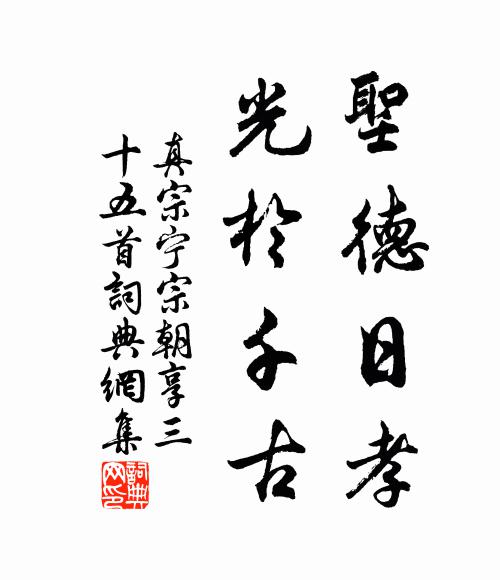 聖德日孝
光於千古
真宗宁宗朝享三
十五首詞典網集
詞典网印